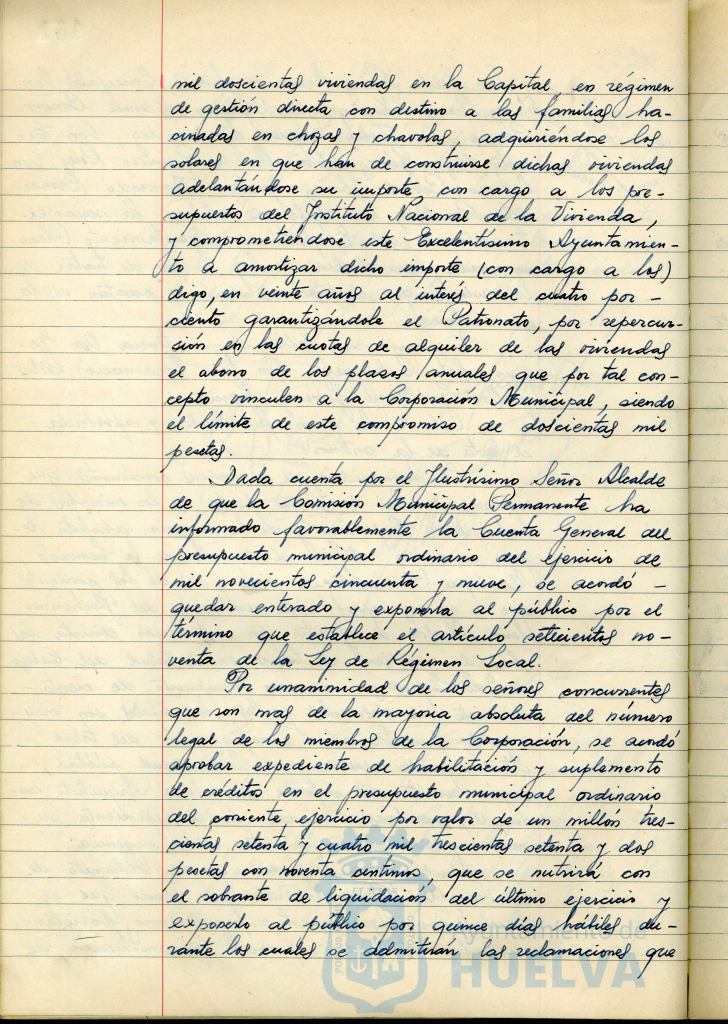 mil doscientas viviendas en la Capital, en régimen
de gestión directa con destino a las familias ha-
cinadas en chozas y chavolas, adquiriéndose los
solares en que han de construirse dichas viviendas
adelantándose su importe, con cargo a los pre-
supuestos del Instituto Nacional de la Vivienda,
y comprometiéndose este Excelentísimo Ayuntamien-
to a amortizar dicho importe (con cargo a los)
digo, en veinte años al interés del cuatro por -
ciento garantizándole el Patronato, por repercu-
sión en las cuotas de alquiler de las viviendas
el abono de los plazos anuales que por tal con-
cepto vinculen a la Corporación Municipal, siendo
el límite de este compromiso de doscientas mil
pesetas.
Dada cuenta por el Ilustrísimo Señor Alcalde
de que la Comisión Municipal Permanente ha
informado favorablemente la Cuenta General del
presupuesto municipal ordinario del ejercicio de
mil novecientos cincuenta y nueve, se acordó -
quedar enterado y exponerla al público por el
término que establece el artículo setecientos no-
venta de la Ley de Régimen Local.
Por unanimidad de los señores concurrentes
que son mas de la mayoria absoluta del número
legal de los miembros de la Corporación, se acordó
aprobar expediente de habilitación y suplemento
de créditos en el presupuesto municipal ordinario
del corriente ejercicio por valor de un millón tres-
cientas setenta y cuatro mil trescientas setenta y dos
pesetas con noventa centimos, que se nutrirá con
el sobrante de liquidación del último ejercicio y
exponerlo al público por quince días hábiles du-
rante los cuales se admitirán las reclamaciones que
Ayuntamiento de
HUELVA